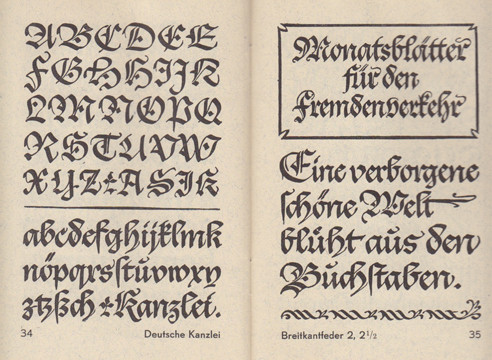 ABCDEE
FGHHIJK
LMNNOPQ
RSTUVW
XYZ*ASIK
abcdefghijklmk
nöpqrsſtuvwxy
ztzßch*Kanzlei.
34 Deutsche Kanzlei
Monatsblätter
für den
Fremdenverkehr
Eine verborgene
ſchöne Welt
blüht aus den
Buchſtaben.
Breitkantfeder 2, 2½ 35